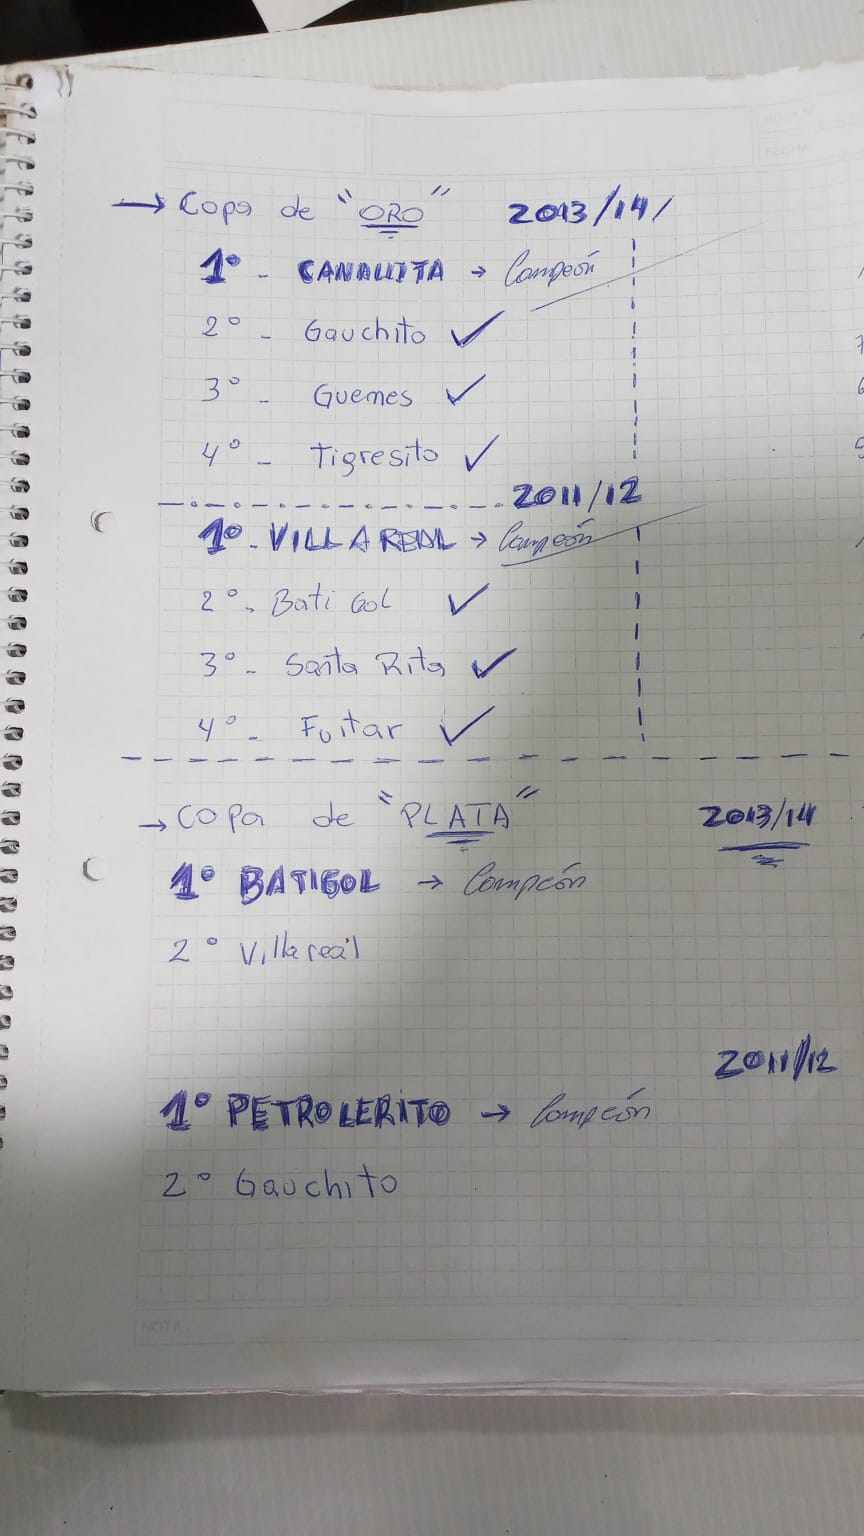 → Copa de "ORO" 2013/14/
1° - CANALLITA → Campeón
2° - Gauchito ✓
3° - Guemes ✓
4° - Tigresito ✓
2011/12
1° - VILLAREAL → Campeón
2° - Bati Gol ✓
3° - Santa Rita ✓
4° - Futtar ✓
→ Copa de "PLATA" 2013/14
1° BATIGOL → Campeón
2° Villareal
2011/12
1° PETROLERITO → Campeón
2° Gauchito
NOTA